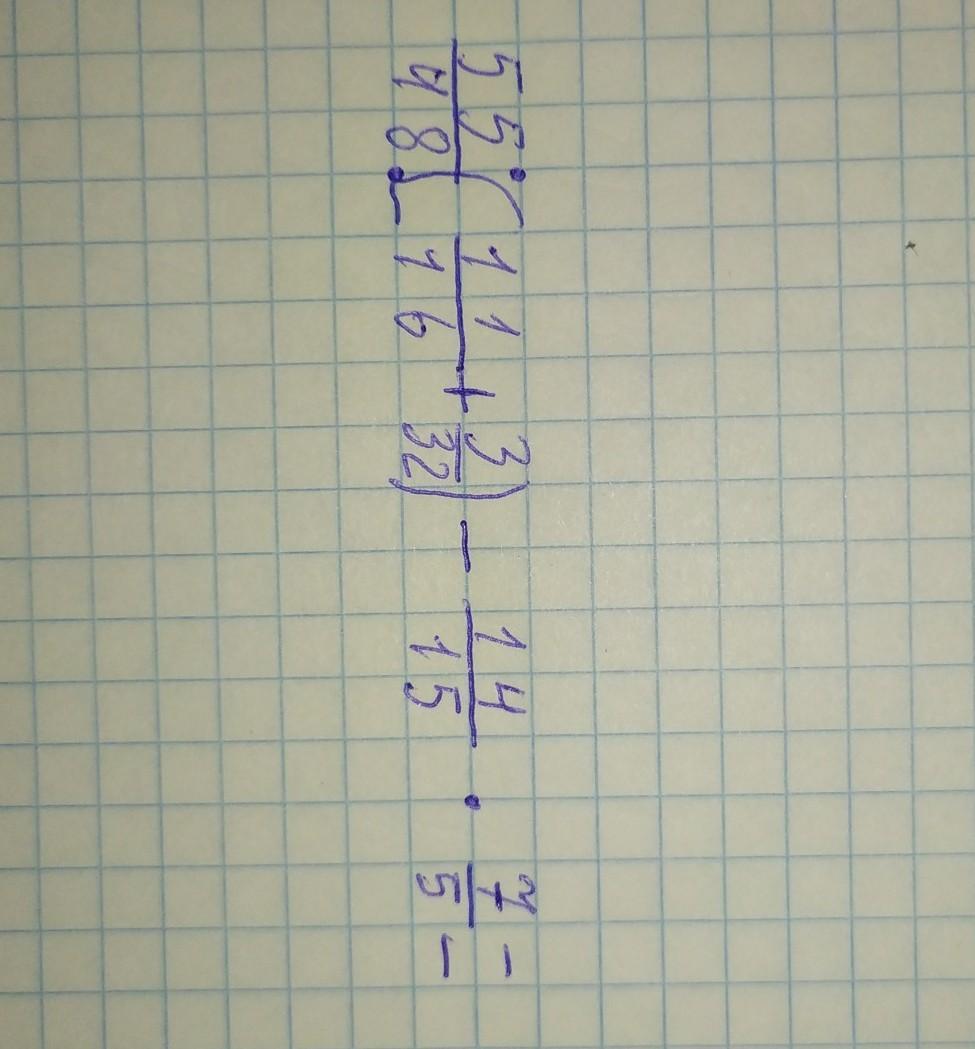 55/48 : (11/16 + 3/32) - 14/15 · 7/5 =